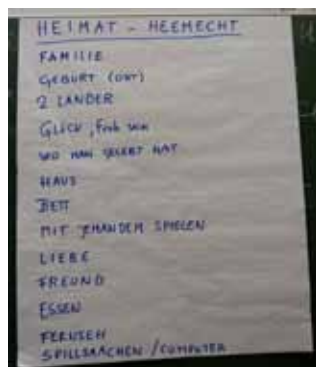 HEIMAT - HEEMECHT
FAMILIE
GEBURT (ORT)
2 LÄNDER
GLÜCK, Froh sein
WO MAN GELEBT HAT
HAUS
BETT
MIT JEMANDEM SPIELEN
LIEBE
FREUND
ESSEN
FERNSEH
SPILLSAACHEN / COMPUTER